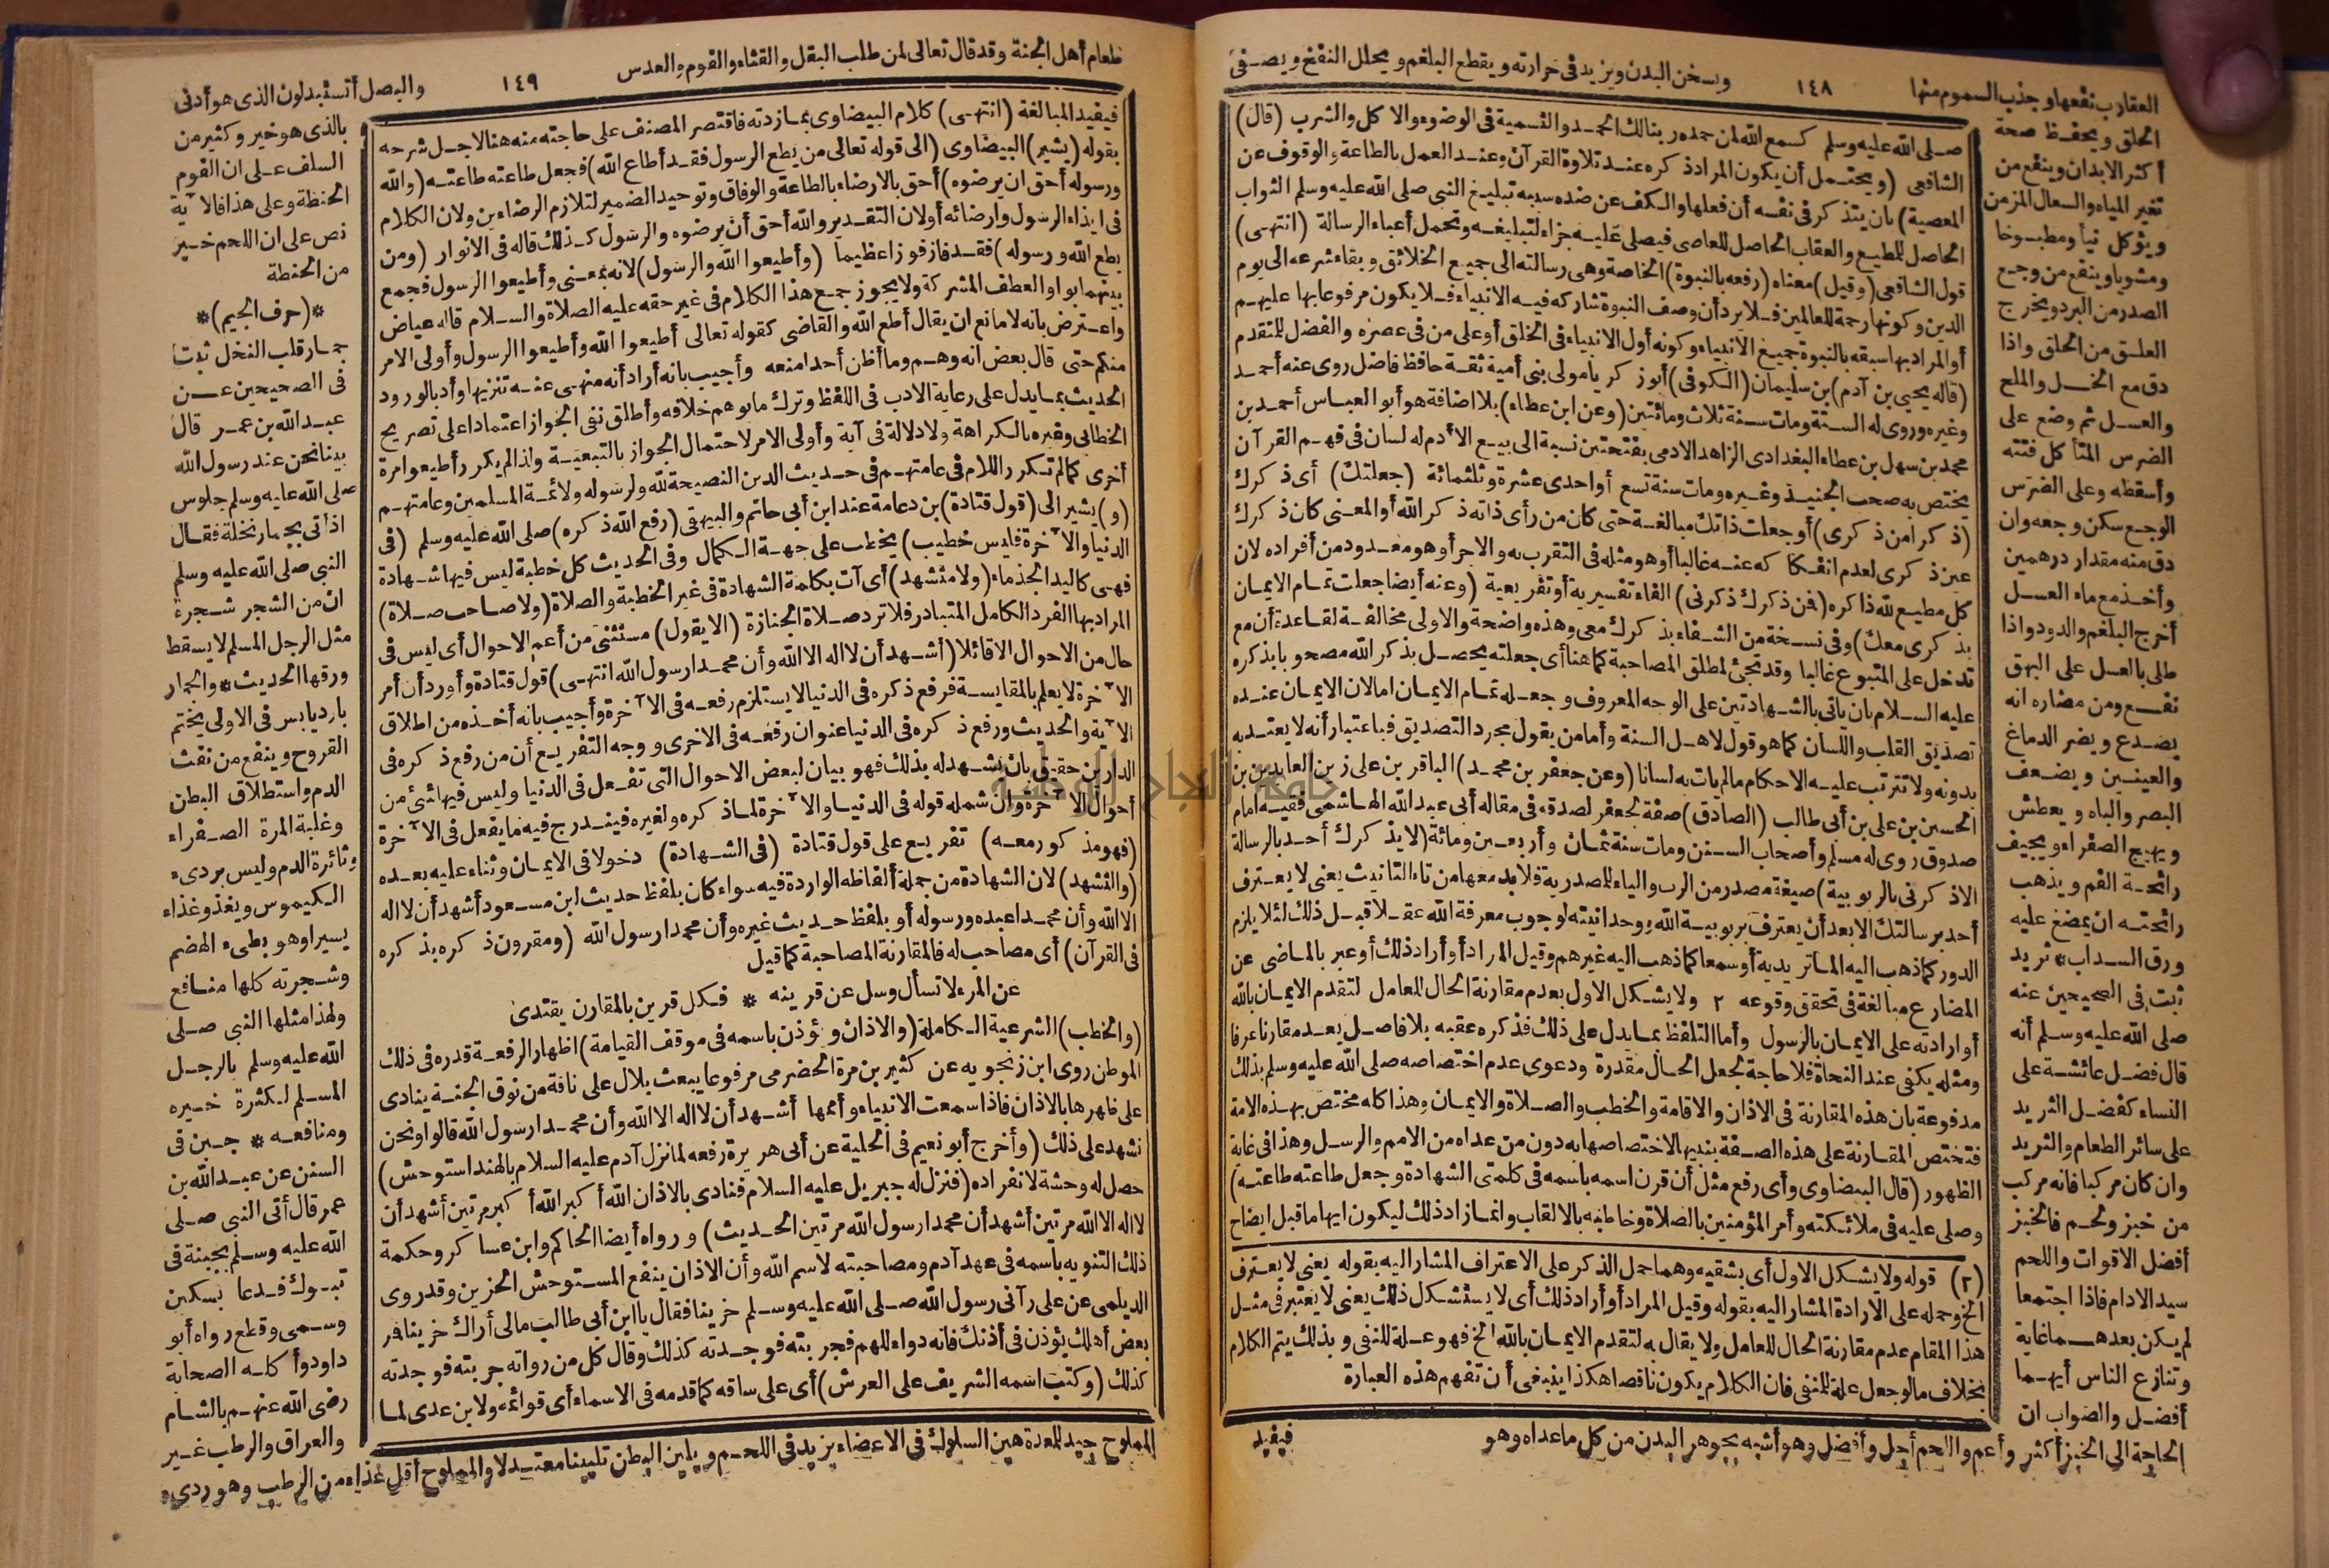 ١٤٨
العقارب نفعها وجذب السموم منها
ويسخن البدن ويزيد في حرارته ويقطع البلغم ويحلل النفخ ويصفي
الحلق ويحفظ صحة
أكثر الابدان وينفع من
تغير المياه والسعال المزمن
ويؤكل نيأ ومطبوخا
ومشويا وينفع من وجع
الصدر من البرد ويخرج
العلق من الحلق واذا
دق مع الخل والملح
والعسل ثم وضع على
الضرس المتأكل فتته
وأسقطه وعلى الضرس
الوجع سكن وجعه وان
دق منه مقدار درهمين
وأخذ مع ماء العسل
أخرج البلغم والدود واذا
طلى بالعسل على البهق
نفع ومن مضاره انه
يصدع ويضر الدماغ
والعينين ويضعف
البصر والباه ويعطش
ويهيج الصفراء ويجيف
رائحة الفم ويذهب
رائحته ان يمضغ عليه
ورق السداب * ثريد
ثبت في الصحيحين عنه
صلى الله عليه وسلم أنه
قال فضل عائشة على
النساء كفضل الثريد
على سائر الطعام والثريد
وان كان مركبا فانه مركب
من خبز ولحم فالخبز
أفضل الاقوات واللحم
سيد الادام فاذا اجتمعا
لم يكن بعدهما غاية
وتنازع الناس أيهما
أفضل والصواب ان
الحاجة الى الخبز أكثر وأعم واللحم أجل وأفضل وهو أشبه بجوهر البدن من كل ما عداه وهو
صلى الله عليه وسلم كسمع الله لمن حمده ربنا لك الحمد والتسمية في الوضوء والاكل والشرب (قال)
الشافعي (ويحتمل أن يكون المراد ذكره عند تلاوة القرآن وعند العمل بالطاعة والوقوف عن
المعصية) بان يتذكر في نفسه أن فعلها والكف عن ضده سببه تبليغ النبي صلى الله عليه وسلم الثواب
الحاصل للمطيع والعقاب الحاصل للعاصي فيصلي عليه جزاء لتبليغه وتحمل أعباء الرسالة (انتهى)
قول الشافعي (وقيل) معناه (رفعه بالنبوة) الخاصة وهي رسالته الى جميع الخلائق وبقاء شرعه الى يوم
الدين وكونها رحمة للعالمين فلا يرد أن وصف النبوة شاركه فيه الانبياء فلا يكون مرفوعا بها عليهم
أو المراد بها سبقه بالنبوة جميع الانبياء وكونه أول الانبياء في الخلق أو على من في عصره والفضل للمتقدم
(قاله يحيى بن آدم) بن سليمان (الكوفي) أبو زكريا مولى بني أمية ثقة حافظ فاضل روى عنه أحمد
وغيره وروى له الستة ومات سنة ثلاث ومائتين (وعن ابن عطاء) بلا اضافة هو أبو العباس أحمد بن
محمد بن سهل بن عطاء البغدادي الزاهد الادمي بفتحتين نسبة الى بيع الأدم له لسان في فهم القرآن
يختص به صحب الجنيد وغيره ومات سنة تسع أو احدى عشرة وثلثمائة (جعلتك) أي ذكرك
(ذكرا من ذكري) أو جعلت ذاتك مبالغة حتى كان من رأى ذاته ذكر الله أو المعنى كان ذكرك
عين ذكري لعدم انفكاكه عنه غالبا أو هو مثله في التقرب به والاجر أو هو معدود من أفراده لان
كل مطيع لله ذاكره (فمن ذكرك ذكرني) الفاء تفسيرية أو تفريعية (وعنه أيضا جعلت تمام الايمان
بذكري معك) وفي نسخة من الشفاء بذكرك معي وهذه واضحة والاولى مخالفة لقاعدة أن مع
تدخل على المتبوع غالبا وقد تجئ لمطلق المصاحبة كما هنا أي جعلته يحصل بذكر الله مصحوبا بذكره
عليه السلام بان يأتي بالشهادتين على الوجه المعروف وجعله تمام الايمان اما لان الايمان عنده
تصديق القلب واللسان كما هو قول لاهل السنة وأما من يقول مجرد التصديق فباعتبار أنه لا يعتد به
بدونه ولا تترتب عليه الاحكام ما لم يأت به لسانا (وعن جعفر بن محمد) الباقر بن علي زين العابدين بن
الحسين بن علي بن أبي طالب (الصادق) صفة لجعفر لصدقه في مقاله أبي عبد الله الهاشمي فقيه امام
صدوق روى له مسلم وأصحاب السنن ومات سنة ثمان وأربعين ومائة (لا يذكرك أحد بالرسالة
الا ذكرني بالربوبية) صيغة مصدر من الرب والياء للمصدرية فلا بد معها من تاء التأنيث يعني لا يعترف
أحد برسالتك الا بعد أن يعترف بربوبية الله ووحدانيته لوجوب معرفة الله عقلا قبل ذلك لئلا يلزم
الدور كما ذهب اليه الماتريدية أو سمعا كما ذهب اليه غيرهم وقيل المراد أو أراد ذلك أو عبر بالماضي عن
المضارع مبالغة في تحقق وقوعه ٢ ولا يشكل الاول بعدم مقارنة الحال للعامل لتقدم الايمان بالله
أو ارادته على الايمان بالرسول وأما التلفظ بما يدل على ذلك فذكره عقبه بلا فاصل يعد مقارنا عرفا
ومثله يكفي عند النحاة فلا حاجة لجعل الحال مقدرة ودعوى عدم اختصاصه صلى الله عليه وسلم بذلك
مدفوعة بان هذه المقارنة في الاذان والاقامة والخطب والصلاة والايمان وهذا كله مختص بهذه الامة
فتختص المقارنة على هذه الصفة بنبيها لاختصاصها به دون من عداه من الامم والرسل وهذا في غاية
الظهور (قال البيضاوي وأي رفع مثل أن قرن اسمه باسمه في كلمتي الشهادة وجعل طاعته طاعته)
وصلى عليه في ملائكته وأمر المؤمنين بالصلاة وخاطبه بالالقاب وانما زاد ذلك ليكون ايهاما قبل ايضاح
(٢) قوله ولا يشكل الاول أي بشقيه وهما حمل الذكر على الاعتراف المشار اليه بقوله يعني لا يعترف
الخ وحمله على الارادة المشار اليه بقوله وقيل المراد أو أراد ذلك أي لا يستشكل ذلك يعني لا يعتبر في مثل
هذا المقام عدم مقارنة الحال للعامل ولا يقال به لتقدم الايمان بالله الخ فهو علة للنفي وبذلك يتم الكلام
بخلاف ما لو جعل علة للمنفي فان الكلام يكون ناقصا هكذا ينبغي أن تفهم هذه العبارة
فيفيد
١٤٩
طعام أهل الجنة وقد قال تعالى لمن طلب البقل والقثاء والفوم والعدس
والبصل أتستبدلون الذي هو أدنى
بالذي هو خير وكثير من
السلف على ان الفوم
الحنطة وعلى هذا فالآية
نص على ان اللحم خير
من الحنطة
*(حرف الجيم)*
جمار قلب النخل ثبت
في الصحيحين عن
عبد الله بن عمر قال
بينا نحن عند رسول الله
صلى الله عليه وسلم جلوس
اذ أتى بجمار نخلة فقال
النبي صلى الله عليه وسلم
ان من الشجر شجرة
مثل الرجل المسلم لا يسقط
ورقها الحديث * والجمار
بارد يابس في الاولى يختم
القروح وينفع من نفث
الدم واستطلاق البطن
وغلبة المرة الصفراء
وثائرة الدم وليس بردىء
الكيموس ويغذو غذاء
يسيرا وهو بطىء الهضم
وشجرته كلها منافع
ولهذا مثلها النبي صلى
الله عليه وسلم بالرجل
المسلم لكثرة خيره
ومنافعه * جبن في
السنن عن عبد الله بن
عمر قال أتى النبي صلى
الله عليه وسلم بجبنة في
تبوك فدعا بسكين
وسمى وقطع رواه أبو
داود وأكله الصحابة
رضى الله عنهم بالشام
والعراق والرطب غير
المملوح جيد للمعدة هين السلوك في الاعضاء يزيد في اللحم ويلين البطن تليينا معتدلا والمملوح أقل غذاء من الرطب وهو ردىء
فيفيد المبالغة (انتهى) كلام البيضاوي بما زدته فاقتصر المصنف على حاجته منه هنا لاجل شرحه
بقوله (يشير) البيضاوي (الى قوله تعالى من يطع الرسول فقد أطاع الله) فجعل طاعته طاعته (والله
ورسوله أحق ان يرضوه) أحق بالارضاء بالطاعة والوفاق وتوحيد الضمير لتلازم الرضاءين ولان الكلام
في ايذاء الرسول وارضائه أو لان التقدير والله أحق أن يرضوه والرسول كذلك قاله في الانوار (ومن
يطع الله ورسوله) فقد فاز فوزا عظيما (وأطيعوا الله والرسول) لانه بمعنى وأطيعوا الرسول فجمع
بينهما بواو العطف المشركة ولا يجوز جمع هذا الكلام في غير حقه عليه الصلاة والسلام قاله عياض
واعترض بانه لا مانع ان يقال أطع الله والقاضي كقوله تعالى أطيعوا الله وأطيعوا الرسول وأولى الامر
منكم حتى قال بعض انه وهم وما أظن أحدا منعه وأجيب بانه أراد أنه منهى عنه تنزيها وأدبا لورود
الحديث بما يدل على رعاية الادب في اللفظ وترك ما يوهم خلافه وأطلق نفي الجواز اعتمادا على تصريح
الخطابي وغيره بالكراهة ولا دلالة في آية وأولى الامر لاحتمال الجواز بالتبعية ولذا لم يكرر أطيعوا مرة
أخرى كما لم تكرر اللام في عامتهم في حديث الدين النصيحة لله ولرسوله ولائمة المسلمين وعامتهم
(و) يشير الى (قول قتادة) بن دعامة عند ابن أبي حاتم والبيهقي (رفع الله ذكره) صلى الله عليه وسلم (في
الدنيا والآخرة فليس خطيب) يخطب على جهة الكمال وفي الحديث كل خطبة ليس فيها شهادة
فهي كاليد الجذماء (ولا متشهد) أي آت بكلمة الشهادة في غير الخطبة والصلاة (ولا صاحب صلاة)
المراد بها الفرد الكامل المتبادر فلا ترد صلاة الجنازة (الا يقول) مستثنى من أعم الاحوال أي ليس في
حال من الاحوال الا قائلا (أشهد أن لا اله الا الله وأن محمدا رسول الله انتهى) قول قتادة وأورد أن أمر
الآخرة لا يعلم بالمقايسة فرفع ذكره في الدنيا لا يستلزم رفعه في الآخرة وأجيب بانه أخذه من اطلاق
الآية والحديث ورفع ذكره في الدنيا عنوان رفعه في الاخرى ووجه التفريع أن من رفع ذكره في
الدارين حقيق بان يشهد له بذلك فهو بيان لبعض الاحوال التي تفعل في الدنيا وليس فيها شئ من
أحوال الآخرة وان شمله قوله في الدنيا والآخرة لما ذكره ولغيره فيندرج فيه ما يفعل في الآخرة
(فهو مذكور معه) تفريع على قول قتادة (في الشهادة) دخولا في الايمان وثناء عليه بعده
(والتشهد) لان الشهادة من جملة ألفاظه الواردة فيه سواء كان بلفظ حديث ابن مسعود أشهد أن لا اله
الا الله وأن محمدا عبده ورسوله أو بلفظ حديث غيره وأن محمدا رسول الله (ومقرون ذكره بذكره
في القرآن) أي مصاحب له فالمقارنة المصاحبة كما قيل
عن المرء لا تسأل وسل عن قرينه * فكل قرين بالمقارن يقتدى
(والخطب) الشرعية الكاملة (والاذان ويؤذن باسمه في موقف القيامة) اظهار الرفعة قدره في ذلك
الموطن روى ابن زنجويه عن كثير بن مرة الحضرمي مرفوعا يبعث بلال على ناقة من نوق الجنة ينادى
على ظهرها بالاذان فاذا سمعت الانبياء وأممها أشهد أن لا اله الا الله وأن محمدا رسول الله قالوا ونحن
نشهد على ذلك (وأخرج أبو نعيم في الحلية عن أبي هريرة رفعه لما نزل آدم عليه السلام بالهند استوحش)
حصل له وحشة لانفراده (فنزل له جبريل عليه السلام فنادى بالاذان الله أكبر الله أكبر مرتين أشهد أن
لا اله الا الله مرتين أشهد أن محمدا رسول الله مرتين الحديث) ورواه أيضا الحاكم وابن عساكر وحكمة
ذلك التنويه باسمه في عهد آدم ومصاحبته لاسم الله وأن الاذان ينفع المستوحش الحزين وقد روى
الديلمي عن علي رآني رسول الله صلى الله عليه وسلم حزينا فقال يا ابن أبي طالب مالي أراك حزينا فمر
بعض أهلك يؤذن في أذنك فانه دواء للهم فجربته فوجدته كذلك وقال كل من رواته جربته فوجدته
كذلك (وكتب اسمه الشريف على العرش) أي على ساقه كما قدمه في الاسماء أي قوائمه ولابن عدي لما
جامعة النجاح الوطنية